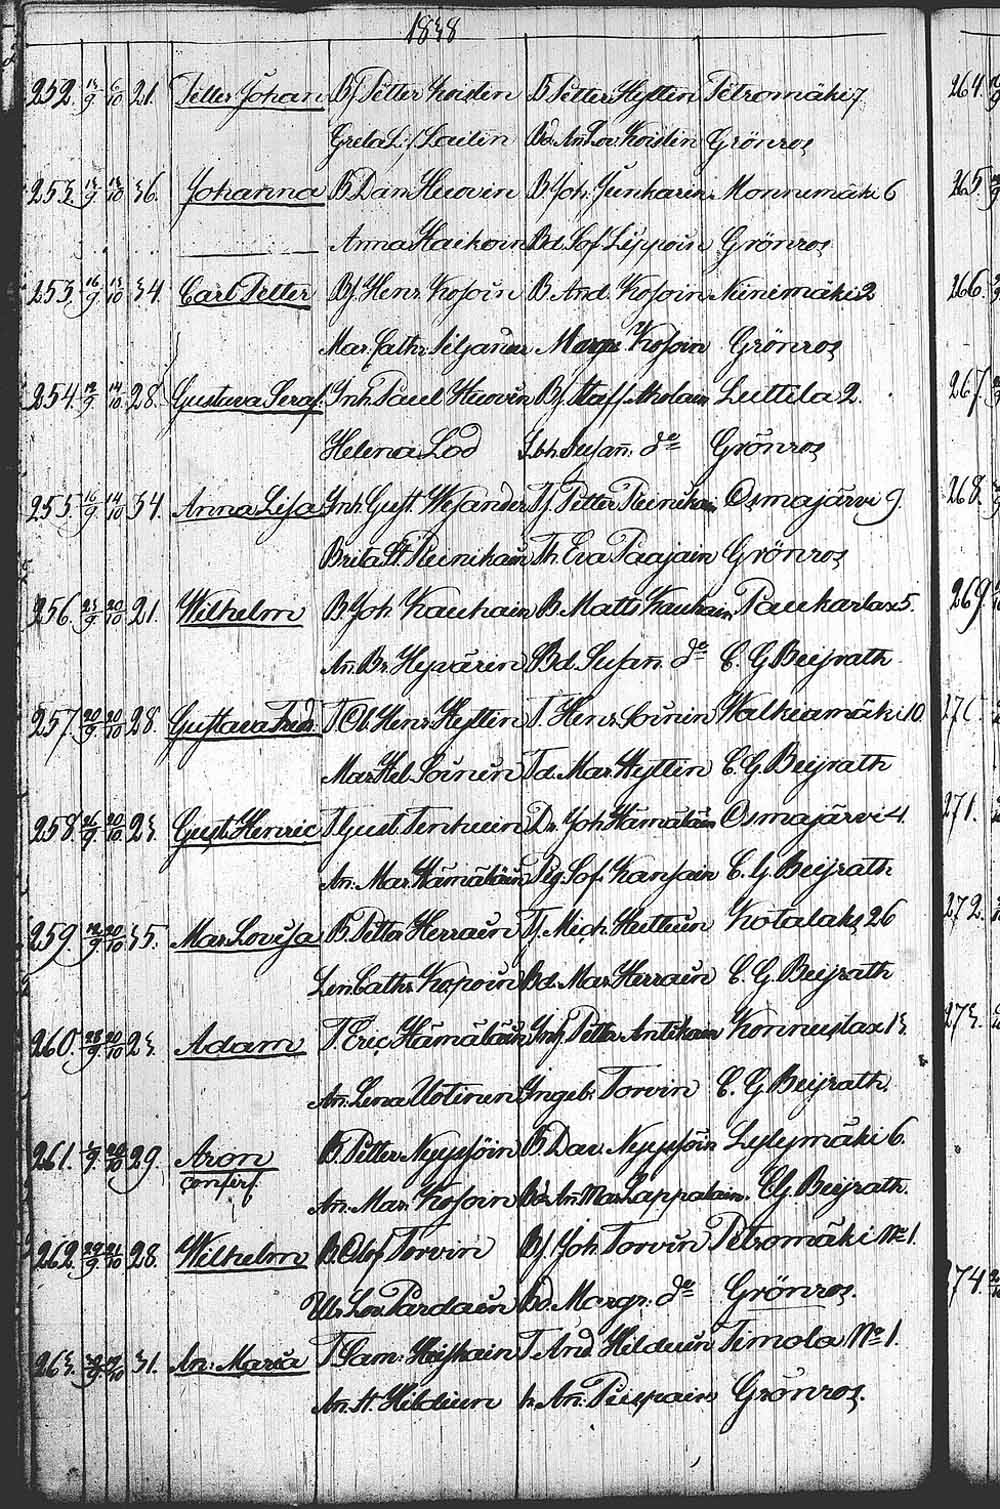 1838
252. 15/9 6/10 21. Petter Johan Bf Petter Koistin B Petter Hyttin Petromäki 7
Greta L. Laitin Bd. An Lov. Koistin Grönros
253. 13/9 13/10 36. Johanna B Dan Huovin B Joh. Junkarin Monnimäki 6
Anna Haikoin Bd Sof Lippoin Grönros
253. 16/9 13/10 34. Carl Petter Bf. Henr. Kosoin B. And. Kosoin Niinimäki 2
Mar. Cathr. Margr Kosoin Grönros
254. 12/9 14/10 28. Gustava Seraf. Inh. Paul Huovin Bf. Staff Luttila 2.
Helena Lod Susan. do Grönros
255. 16/9 14/10 34. Anna Lisa Inh Gust. Wesander Tf. Petter Osmajärvi 9.
Brita St. Th. Eva Paajain Grönros
256. 23/9 20/10 21. Wilhelm B. Joh. Kauhain B. Matts Kauhain Paukarlax 5.
An. Br. Hyvärin Bd. Susan. do C. G Beijrath
257. 20/9 20/10 28. Gustava Fredr. T. Ol. Henr. Hyttin T. Henr. Soinin Walkeamäki 10.
Mar. Hel. Soinin Td. Mar. Hyttin C. G Beijrath
258. 26/9 20/10 23. Gust. Henric T Gust. Tenhuin Dr. Joh Hämäläin Osmajärvi 4.
An. Mar. Hämäläin Pig. Sof. Kansain C. G. Beijrath
259. 12/9 20/10 35. Mar. Lovisa B. Petter Herrain Tf. Mich. Huttuin Kotalaks 26
Lin Cathr. Kopoin Bd. Mar. Herrain C. G. Beijrath
260. 28/9 20/10 23. Adam T. Eric Hämäläin Inh. Petter Antikain Konnuslax 13.
An. Lena Uotinen Ingeb. Torvin C. G. Beijrath
261. 20/10 29. Aron B. Petter Nyyssöin B. Dav. Nyyssöin Lylymäki 6.
An. Mar. Kosoin Bd. An Mar. Lappalain. C G. Beijrath.
262. 29/9 21/10 28. Wilhelm B. Olof Torvin Bf. Joh. Torvin Petromäki No 1.
Ulr. Lov. Pardain Bd. Margr. do Grönros.
263. 31. An. Maria T. Sam. T. And Hilduin Timola No 1.
An. St. Hilduin h. An. Grönros.
264.
265.
266.
267.
268.
269.
27
271.
272.
273.
274.